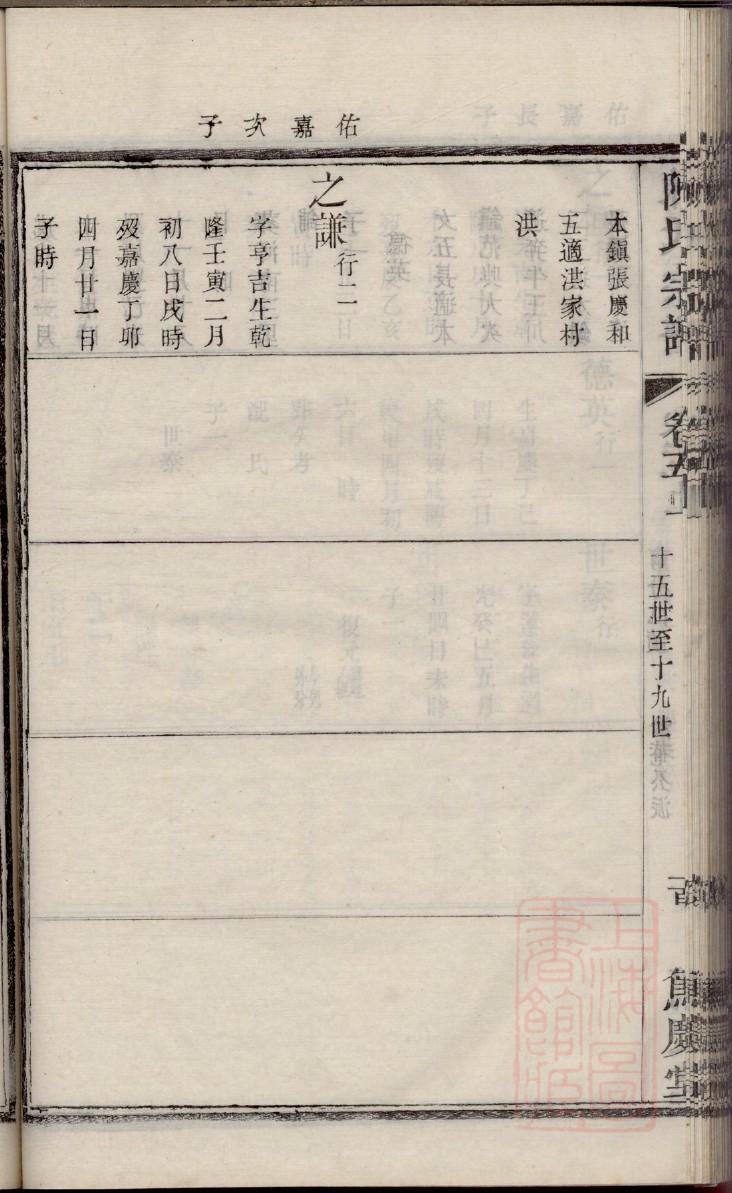 佑嘉次子
本鎮張慶和
五適洪家村
洪
之謙行二
字亨吉生乾
隆壬寅二月
初八日戌時
歿嘉慶丁卯
四月廿一日
子時
陳氏宗譜
卷五
十五世至十九世
上海圖書館藏